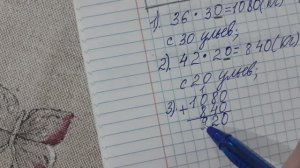 1) 36 · 30 = 1080 (кг)
с 30 ульев;
2) 42 · 20 = 840 (кг)
с 20 ульев;
3) + 1080
840